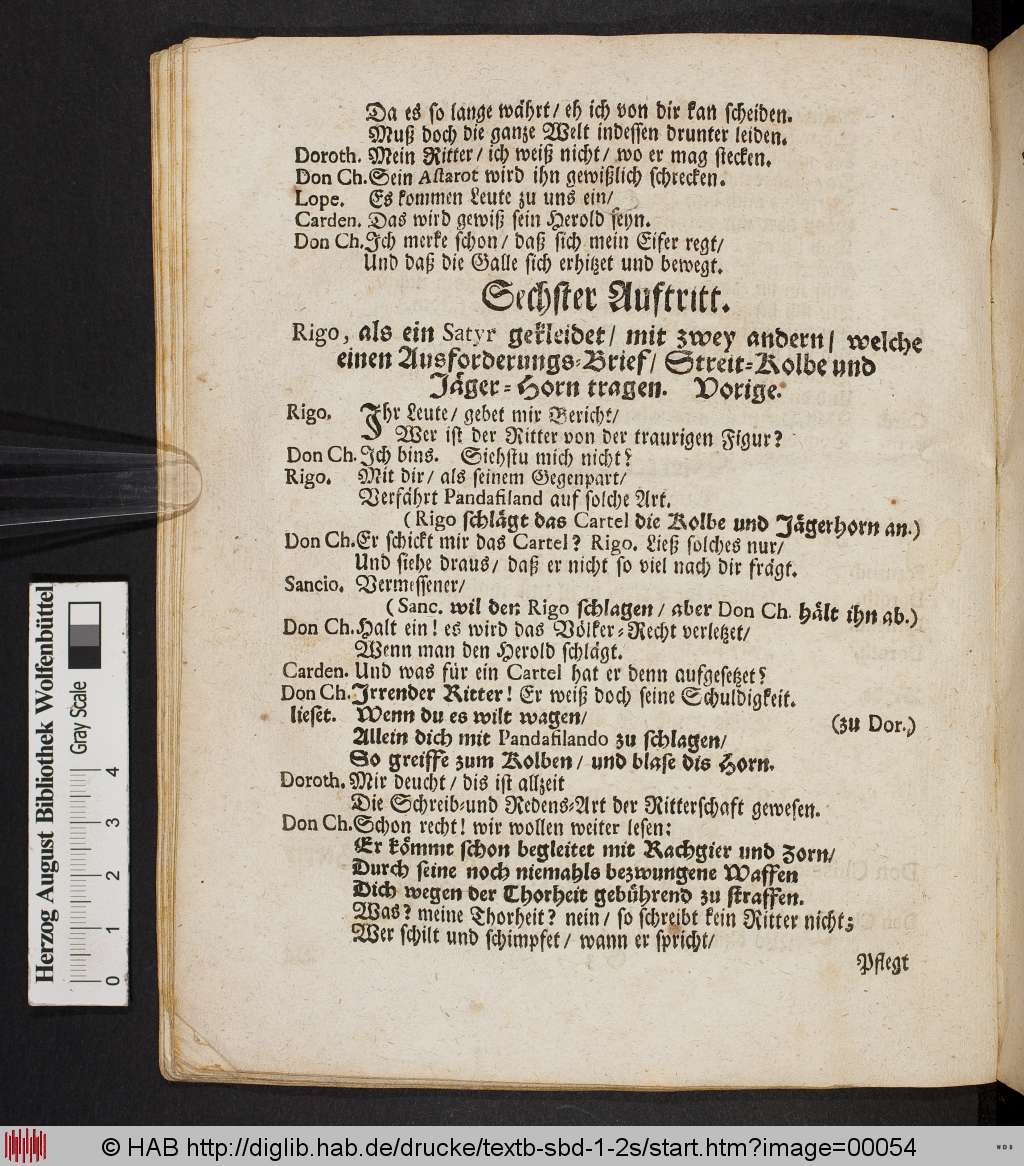 Da es so lange währt/ eh ich von dir kan scheiden.
Muß doch die ganze Welt indessen drunter leiden.
Doroth. Mein Ritter/ ich weiß nicht/ wo er mag stecken.
Don Ch. Sein Astarot wird ihn gewißlich schrecken.
Lope. Es kommen Leute zu uns ein/
Carden. Das wird gewiß sein Herold seyn.
Don Ch. Ich merke schon/ daß sich mein Eifer regt/
Und daß die Galle sich erhitzet und bewegt.
Sechster Auftritt.
Rigo, als ein Satyr gekleidet/ mit zwey andern/ welche
einen Ausforderungs-Brief/ Streit-Kolbe und
Jäger-Horn tragen. Vorige.
Rigo. Ihr Leute/ gebet mir Bericht/
Wer ist der Ritter von der traurigen Figur?
Don Ch. Ich bins. Siehstu mich nicht?
Rigo. Mit dir/ als seinem Gegenpart/
Verfährt Pandafiland auf solche Art.
(Rigo schlägt das Cartel die Kolbe und Jägerhorn an.)
Don Ch. Er schickt mir das Cartel? Rigo. Ließ solches nur/
Und siehe draus/ daß er nicht so viel nach dir frägt.
Sancio. Vermessener/
(Sanc. wil den Rigo schlagen/ aber Don Ch. hält ihn ab.)
Don Ch. Halt ein! es wird das Völker-Recht verletzet/
Wenn man den Herold schlägt.
Carden. Und was für ein Cartel hat er denn aufgesetzet?
Don Ch. Irrender Ritter! Er weiß doch seine Schuldigkeit.
lieset. Wenn du es wilt wagen/ (zu Dor.)
Allein dich mit Pandafilando zu schlagen/
So greiffe zum Kolben/ und blase dis Horn.
Doroth. Mir deucht/ dis ist allzeit
Die Schreib-und Redens-Art der Ritterschaft gewesen.
Don Ch. Schon recht! wir wollen weiter lesen:
Er kömmt schon begleitet mit Rachgier und Zorn/
Durch seine noch niemahls bezwungene Waffen
Dich wegen der Thorheit gebührend zu straffen.
Was? meine Thorheit? nein/ so schreibt kein Ritter nicht;
Wer schilt und schimpfet/ wann er spricht/
Pflegt
Herzog August Bibliothek Wolfenbüttel
Gray Scale
0 1 2 3 4
© HAB http://diglib.hab.de/drucke/textb-sbd-1-2s/start.htm?image=00054